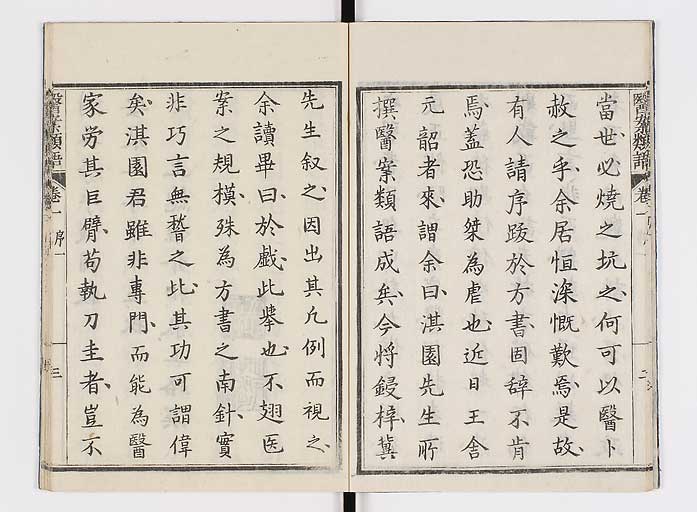 醫案類語 卷一 序 二
當世必燒之坑之何可以醫卜
赦之乎余居恒深慨歎焉是故
有人請序跋於方書固辭不肯
焉蓋恐助桀為虐也近日王舎
元韶者來謂余曰淇園先生所
撰醫案類語成矣今將鋟梓冀
先生叙之因出其凡例而視之
余讀畢曰於戲此舉也不翅医
案之規模殊為方書之南針實
非巧言無稽之比其功可謂偉
矣淇園君雖非專門而能為醫
家劳其巨臂苟執刀圭者豈不
醫案類語 卷一 序一 三